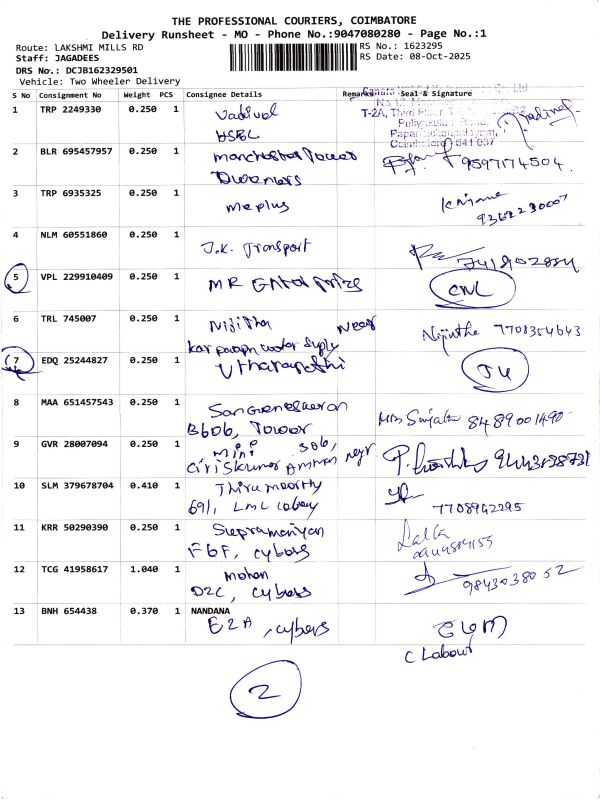 THE PROFESSIONAL COURIERS, COIMBATORE
Delivery Runsheet - MO - Phone No.:9047080280 - Page No.:1
Route: LAKSHMI MILLS RD
RS No.: 1623295
Staff: JAGADEES
RS Date: 08-Oct-2025
DRS No.: DCJB162329501
Vehicle: Two Wheeler Delivery
S No Consignment No Weight PCS Consignee Details Remarks Seal & Signature
1 TRP 2249330 0.250 1 Vadivel
HSBC
T-2A, Third Floor
Coimbatore 641 037
2 BLR 695457957 0.250 1 Manchester Tower 9597174504
3 TRP 6935325 0.250 1 Meplus
4 NLM 60551860 0.250 1 J.K. Transport
5 VPL 229910409 0.250 1 MR CNL
6 TRL 745007 0.250 1 Nijitha Near Nijitha 7708354643
water
7 EDQ 25244827 0.250 1
8 MAA 651457543 0.250 1 8489001490
B606, Tower
9 GVR 28007094 0.250 1 Mini 306,
Amman
10 SLM 379678704 0.410 1 Thirumoorthy
691, LML colony 7708942295
11 KRR 50290390 0.250 1 Lalta
FGF, cybers
12 TCG 41958617 1.040 1 Mohan
D2C, cybers 9843038052
13 BNH 654438 0.370 1 NANDANA
E2A, cybers
C Labour
2